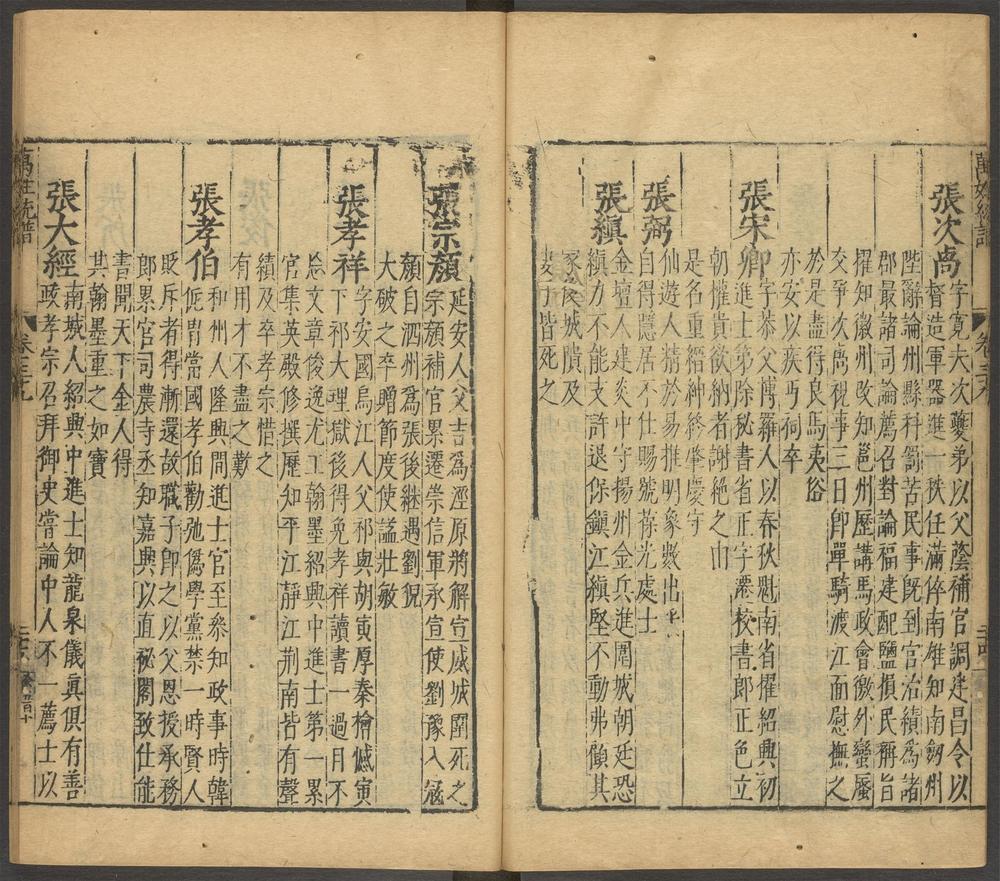 萬姓統譜
卷三十九
張次卨
字寬夫次夔弟以父蔭補官調建昌令以
督造軍器進一秩任滿倅南雄知南劒州
陛辭論州縣科罰苦民事旣到官治績爲諸
郡最諸司論薦召對論福建配鹽損民稱旨
擢知徽州改知邕州歷講馬政會徼外蠻蜑
交爭次卨視事三日卽單騎渡江面慰撫之
於是盡得良馬夷俗
亦安以疾丐祠卒
張宋卿
字恭父博羅人以春秋魁南省擢紹興初
進士第除秘書省正字遷校書郎正色立
朝權貴欲納者謝絕之由
是名重縉紳終肇慶守
張弼
仙遊人精於易推明象數出
自得隱居不仕賜號葆光處士
張縝
金壇人建炎中守揚州金兵進圍城朝廷恐
縝力不能支許退保鎮江縝堅不動弗傾其
家及城潰及
妻子皆死之
張宗顏
延安人父吉爲涇原將解宣威城圍死之
宗顏補官累遷崇信軍承宣使劉豫入寇
顏自泗州爲張後繼遇劉猊
大破之卒贈節度使謚壯敏
張孝祥
字安國烏江人父祁與胡寅厚秦檜憾寅
下祁大理獄後得免孝祥讀書一過月不
忘文章俊逸尤工翰墨紹興中進士第一累
官集英殿修撰歷知平江靜江荆南皆有聲
績及卒孝宗惜之
有用才不盡之歎
張孝伯
和州人隆興間進士官至叅知政事時韓
侂胄當國孝伯勸弛僞學黨禁一時賢人
貶斥者得漸還故職子卽之以父恩授承務
郎累官司農寺丞知嘉興以直祕閣致仕能
書聞天下金人得
其翰墨重之如寶
張大經
南城人紹興中進士知龍泉儀眞俱有善
政孝宗召拜御史嘗論中人不一薦士以
萬姓統譜
卷三十九